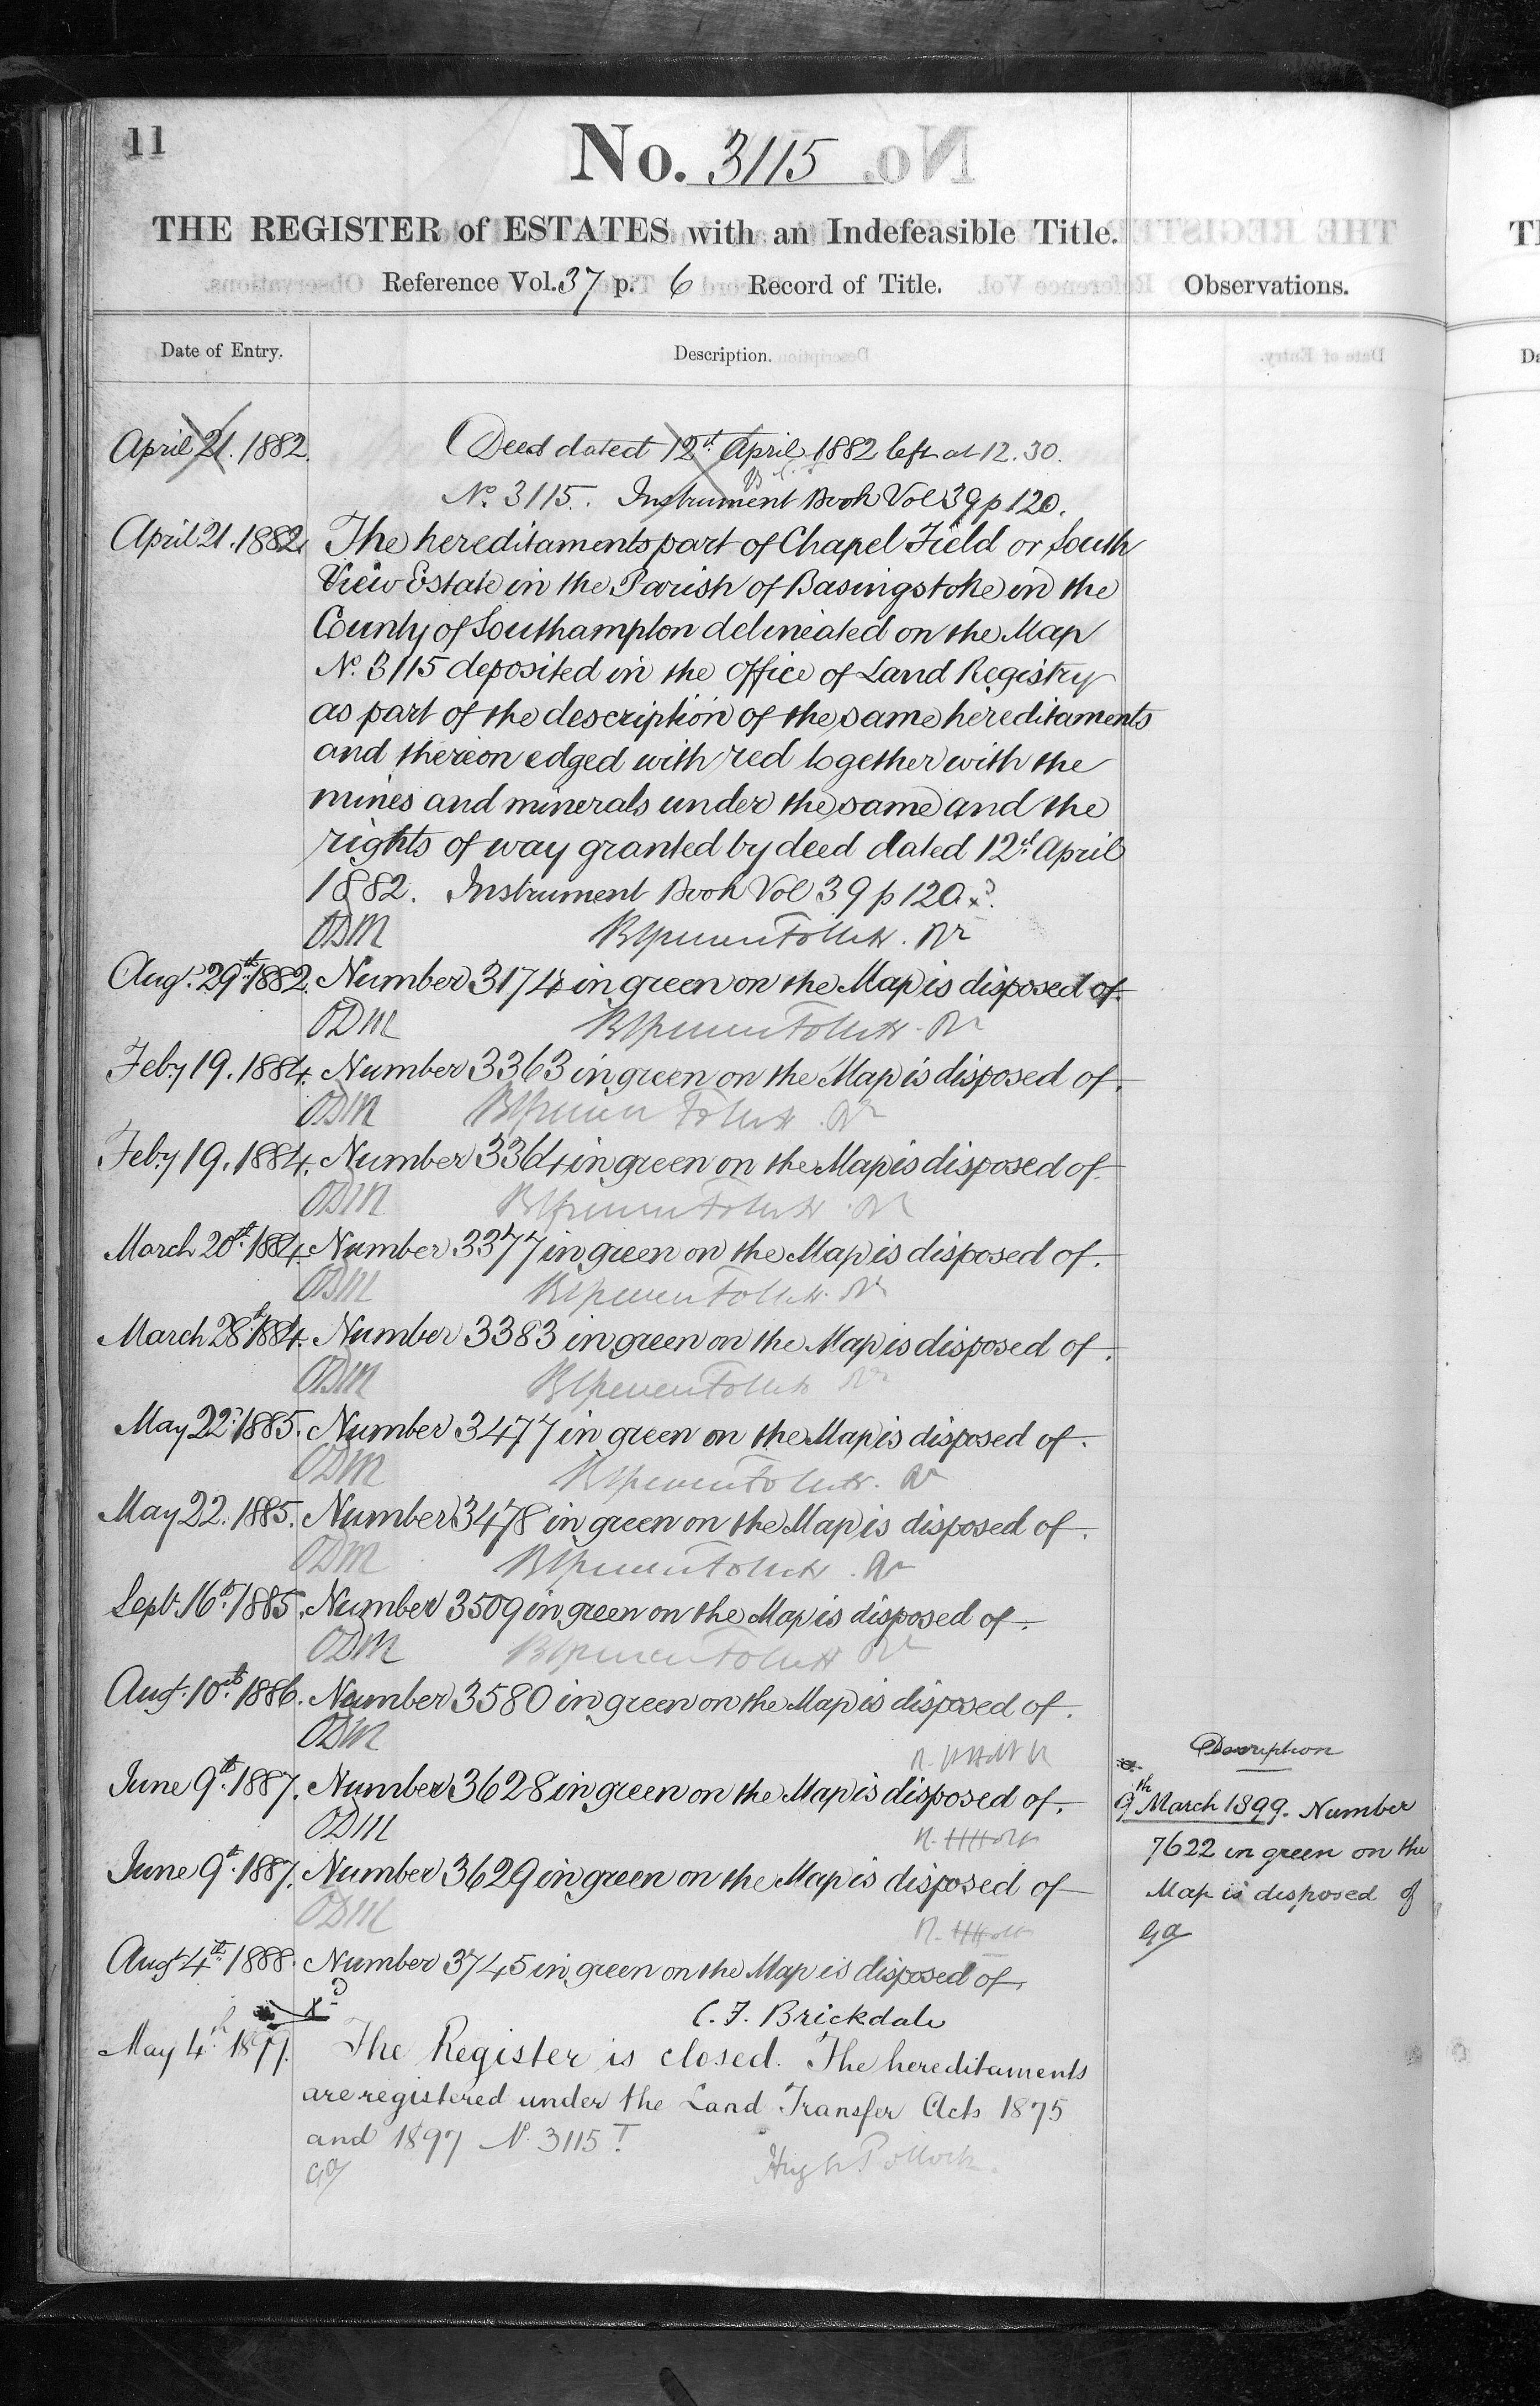 11
No. 3115
THE REGISTER of ESTATES with an Indefeasible Title.
Reference Vol. 37 p. 6 Record of Title.
Observations.
Date of Entry.
Description.
April 21. 1882.
Deed dated 12th April 1882 left at 12.30.
No. 3115. Instrument Book Vol 39 p 120.
April 21. 1882. The hereditaments part of Chapel Field or South
View Estate in the Parish of Basingstoke in the
County of Southampton delineated on the Map
No. 3115 deposited in the Office of Land Registry
as part of the description of the same hereditaments
and thereon edged with red together with the
mines and minerals under the same and the
rights of way granted by deed dated 12th April
1882. Instrument Book Vol 39 p 120.
ODM
Augt. 29th 1882. Number 3174 in green on the Map is disposed of.
ODM
Feby 19. 1884. Number 3363 in green on the Map is disposed of.
ODM
Feby 19. 1884. Number 3364 in green on the Map is disposed of.
ODM
March 20th 1884. Number 3377 in green on the Map is disposed of.
ODM
March 28th 1884. Number 3383 in green on the Map is disposed of.
ODM
May 22d 1885. Number 3477 in green on the Map is disposed of.
ODM
May 22. 1885. Number 3478 in green on the Map is disposed of.
ODM
Sept. 16th 1885. Number 3509 in green on the Map is disposed of.
ODM
Augt. 10th 1886. Number 3580 in green on the Map is disposed of.
ODM
June 9th 1887. Number 3628 in green on the Map is disposed of.
ODM
R. H Holt
June 9th 1887. Number 3629 in green on the Map is disposed of
ODM
R. H Holt
Augt 4th 1888. Number 3745 in green on the Map is disposed of.
C. F. Brickdale
May 4th 1899. The Register is closed. The hereditaments
are registered under the Land Transfer Acts 1875
and 1897 No. 3115 T
GA
Hugh Pollock.
Description
9th March 1899. Number
7622 in green on the
Map is disposed of
GA